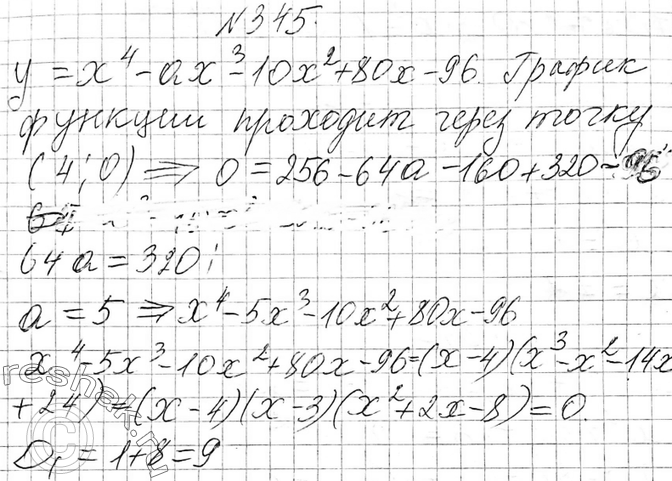 №345.
y = x⁴ - ax³ - 10x² + 80x - 96. График
функции проходит через точку
(4; 0) ⇒ 0 = 256 - 64a - 160 + 320 - 96
64a = 320;
a = 5 ⇒ x⁴ - 5x³ - 10x² + 80x - 96
x⁴ - 5x³ - 10x² + 80x - 96 = (x - 4)(x³ - x² - 14x
+ 24) = (x - 4)(x - 3)(x² + 2x - 8) = 0.
D₁ = 1 + 8 = 9
reshak.ru